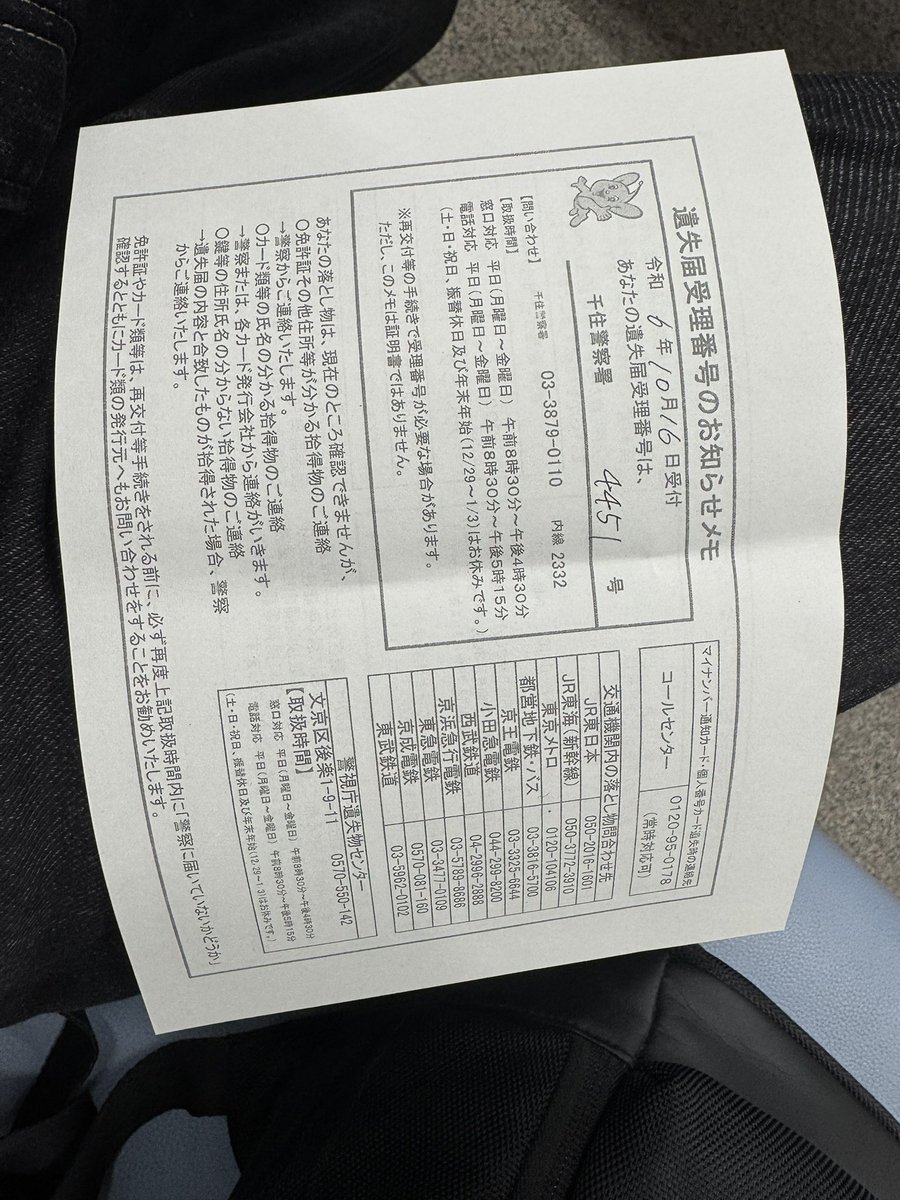 遺失届受理番号のお知らせメモ
令和 6年 10月 16日受付
あなたの遺失届受理番号は、
4451 号
千住警察署
【問い合わせ】 千住警察署 03-3879-0110 内線 2332
【取扱時間】
窓口対応 平日(月曜日～金曜日) 午前8時30分～午後4時30分
電話対応 平日(月曜日～金曜日) 午前8時30分～午後5時15分
(土・日・祝日、振替休日及び年末年始(12/29～1/3)はお休みです。)
※再交付等の手続きで受理番号が必要な場合があります。
ただし、このメモは証明書ではありません。
あなたの落とし物は、現在のところ確認できませんが、
○免許証その他住所等が分かる拾得物のご連絡
→警察からご連絡いたします。
○カード類等の氏名の分かる拾得物のご連絡
→警察または、各カード発行会社から連絡がいきます。
○鍵等の住所氏名の分からない拾得物のご連絡
→遺失届の内容と合致したものが拾得された場合、警察
からご連絡いたします。
マイナンバー通知カード・個人番号カード遺失時の連絡先
コールセンター 0120-95-0178
(常時対応可)
交通機関内の落とし物問合わせ先
JR東日本 050-2016-1601
JR東海(新幹線) 050-3772-3910
東京メトロ 0120-104106
都営地下鉄・バス 03-3816-5700
京王電鉄 03-3325-6644
小田急電鉄 044-299-8200
西武鉄道 04-2996-2888
京浜急行電鉄 03-5789-8686
東急電鉄 03-3477-0109
京成電鉄 0570-081-160
東武鉄道 03-5962-0102
警視庁遺失物センター
文京区後楽1-9-11 0570-550-142
【取扱時間】
窓口対応 平日(月曜日～金曜日) 午前8時30分～午後4時30分
電話対応 平日(月曜日～金曜日) 午前8時30分～午後5時15分
(土・日・祝日、振替休日及び年末年始(12/29～1/3)はお休みです。)
免許証やカード類等は、再交付等手続きをされる前に、必ず再度上記取扱時間内に「警察に届いていないかどうか」
確認するとともにカード類の発行元へもお問い合わせをすることをお勧めいたします。